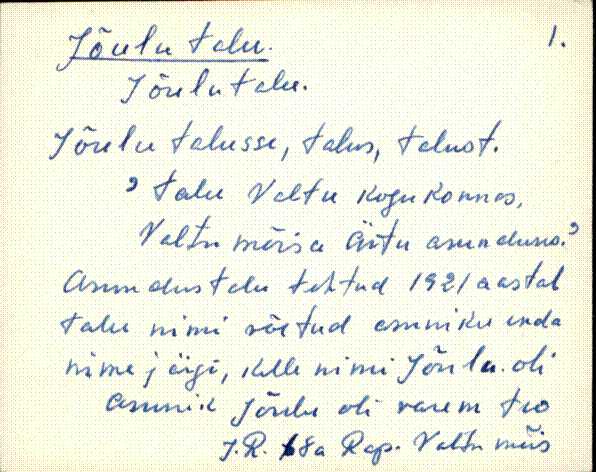 Jõulu talu. 1.
Jõulu talu.
Jõulu talusse, talus, talust.
, talu Valtu kogukonnas,
Valtu mõisa Äitu asunduses.,
Asundustalu tehtud 1921 aastal
talu nimi võetud asuniku enda
nime järgi, kelle nimi Jõulu oli
asunik Jõulu oli varem teo
J.R. 68a Rap. Valtu mõis